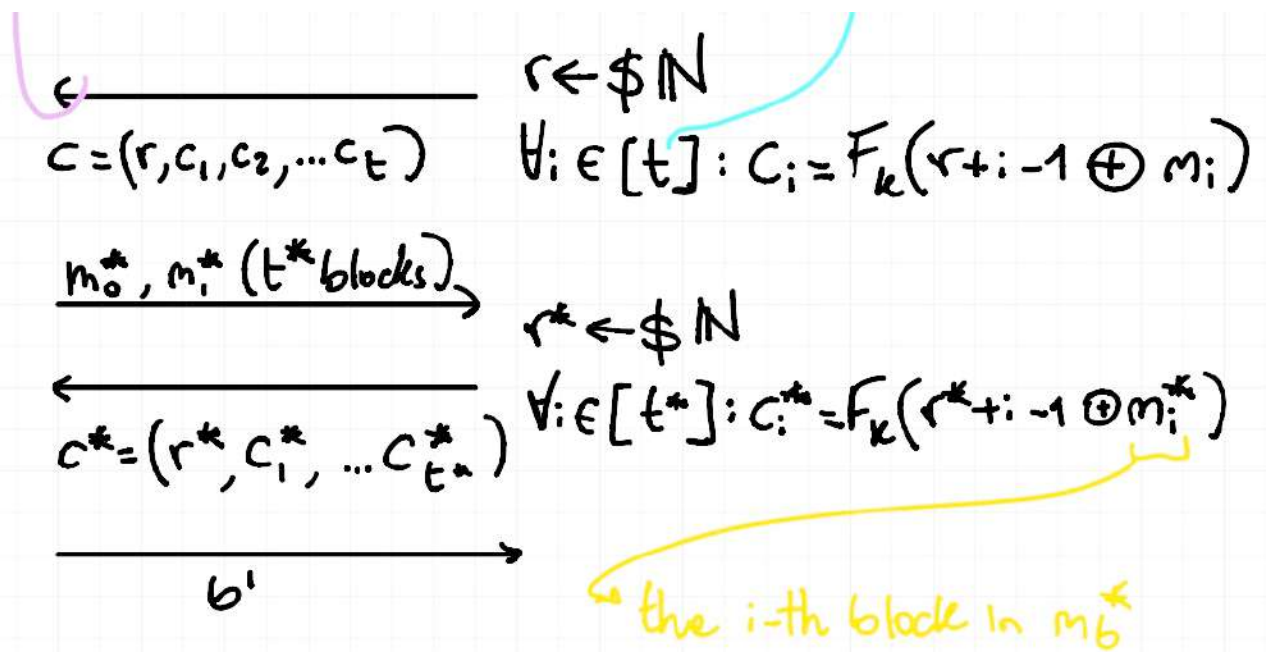 r ← $ ℕ
c = (r, c₁, c₂, ... cₜ) ∀i ∈ [t] : Cᵢ = Fₖ(r + i - 1 ⊕ mᵢ)
m₀*, m₁* (t* blocks)
r* ← $ ℕ
∀i ∈ [t*] : cᵢ* = Fₖ(r* + i - 1 ⊕ mᵢ*)
c* = (r*, c₁*, ... c*ₜ*)
b'
the i-th block in m_b*